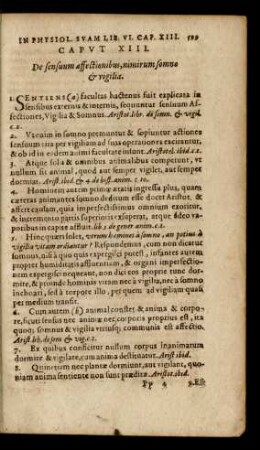 IN PHYSIOL. SVAM LIB. VI. CAP. XIII. 599
CAPVT XIII.
De sensuum affectionibus, nimirum somno
& vigilia.
1. SENTIENS (a) facultas hactenus fuit explicata in
sensibus externis & internis, sequuntur sensuum Af-
fectiones, Vigilia & Somnus. Aristot. libr. de somn. & vigil.
c. 1.
2. Vtrum in somno premuntur & sopiuntur actiones
sensuum ita per vigiliam ad suas operationes excitantur,
& ob id in eâdem animi facultate insunt. Arist. ibid.
3. Atque sola & omnibus animalibus competunt, vt
nullum sit animal, quod aut semper vigilet, aut semper
dormiat. Arist. ibid. & 4. de hist. anim. c. 10.
4. Hominem autem primæ ætatis ingressu
somnus
& inertiam partis superioris exsuperat, atque
variis in partibus corpore afficit. lib. 5. de gener. anim. c. 1.
5. Hinc quæri solet, vtrum homines à somno, an potius à
vigilia vitam ordiantur? Respondemus, cum non dicatur
somnus, nisi à quo quis expergisci potest, infantes autem
propter humiditatis affluxum, & organi imperfectionem
expergisci nequeant, non dici eos proprie tunc dor-
mire, & proinde hominum vitam nec à vigilia, nec à somno
inchoari, sed à torpore illo, per quem ad vigiliam quasi
per medium transit.
6. Cum autem (b) animal constet & anima & corpo-
re, sicuti sensus nec animæ nec corporis proprius est, ita
quoque somnus & vigilia vtriusque communis est affectio.
Arist. lib. de som. & vig. c. 1.
7. Ex quibus conficitur nullum corpus inanimatum
dormire & vigilare, cum anima destituatur. Arist ibid.
8. Quinetiam nec plantæ dormiunt, aut vigilant, quo-
niam anima sentiente non sunt præditæ. Aristot. ibid.
Pp 4 9. Est